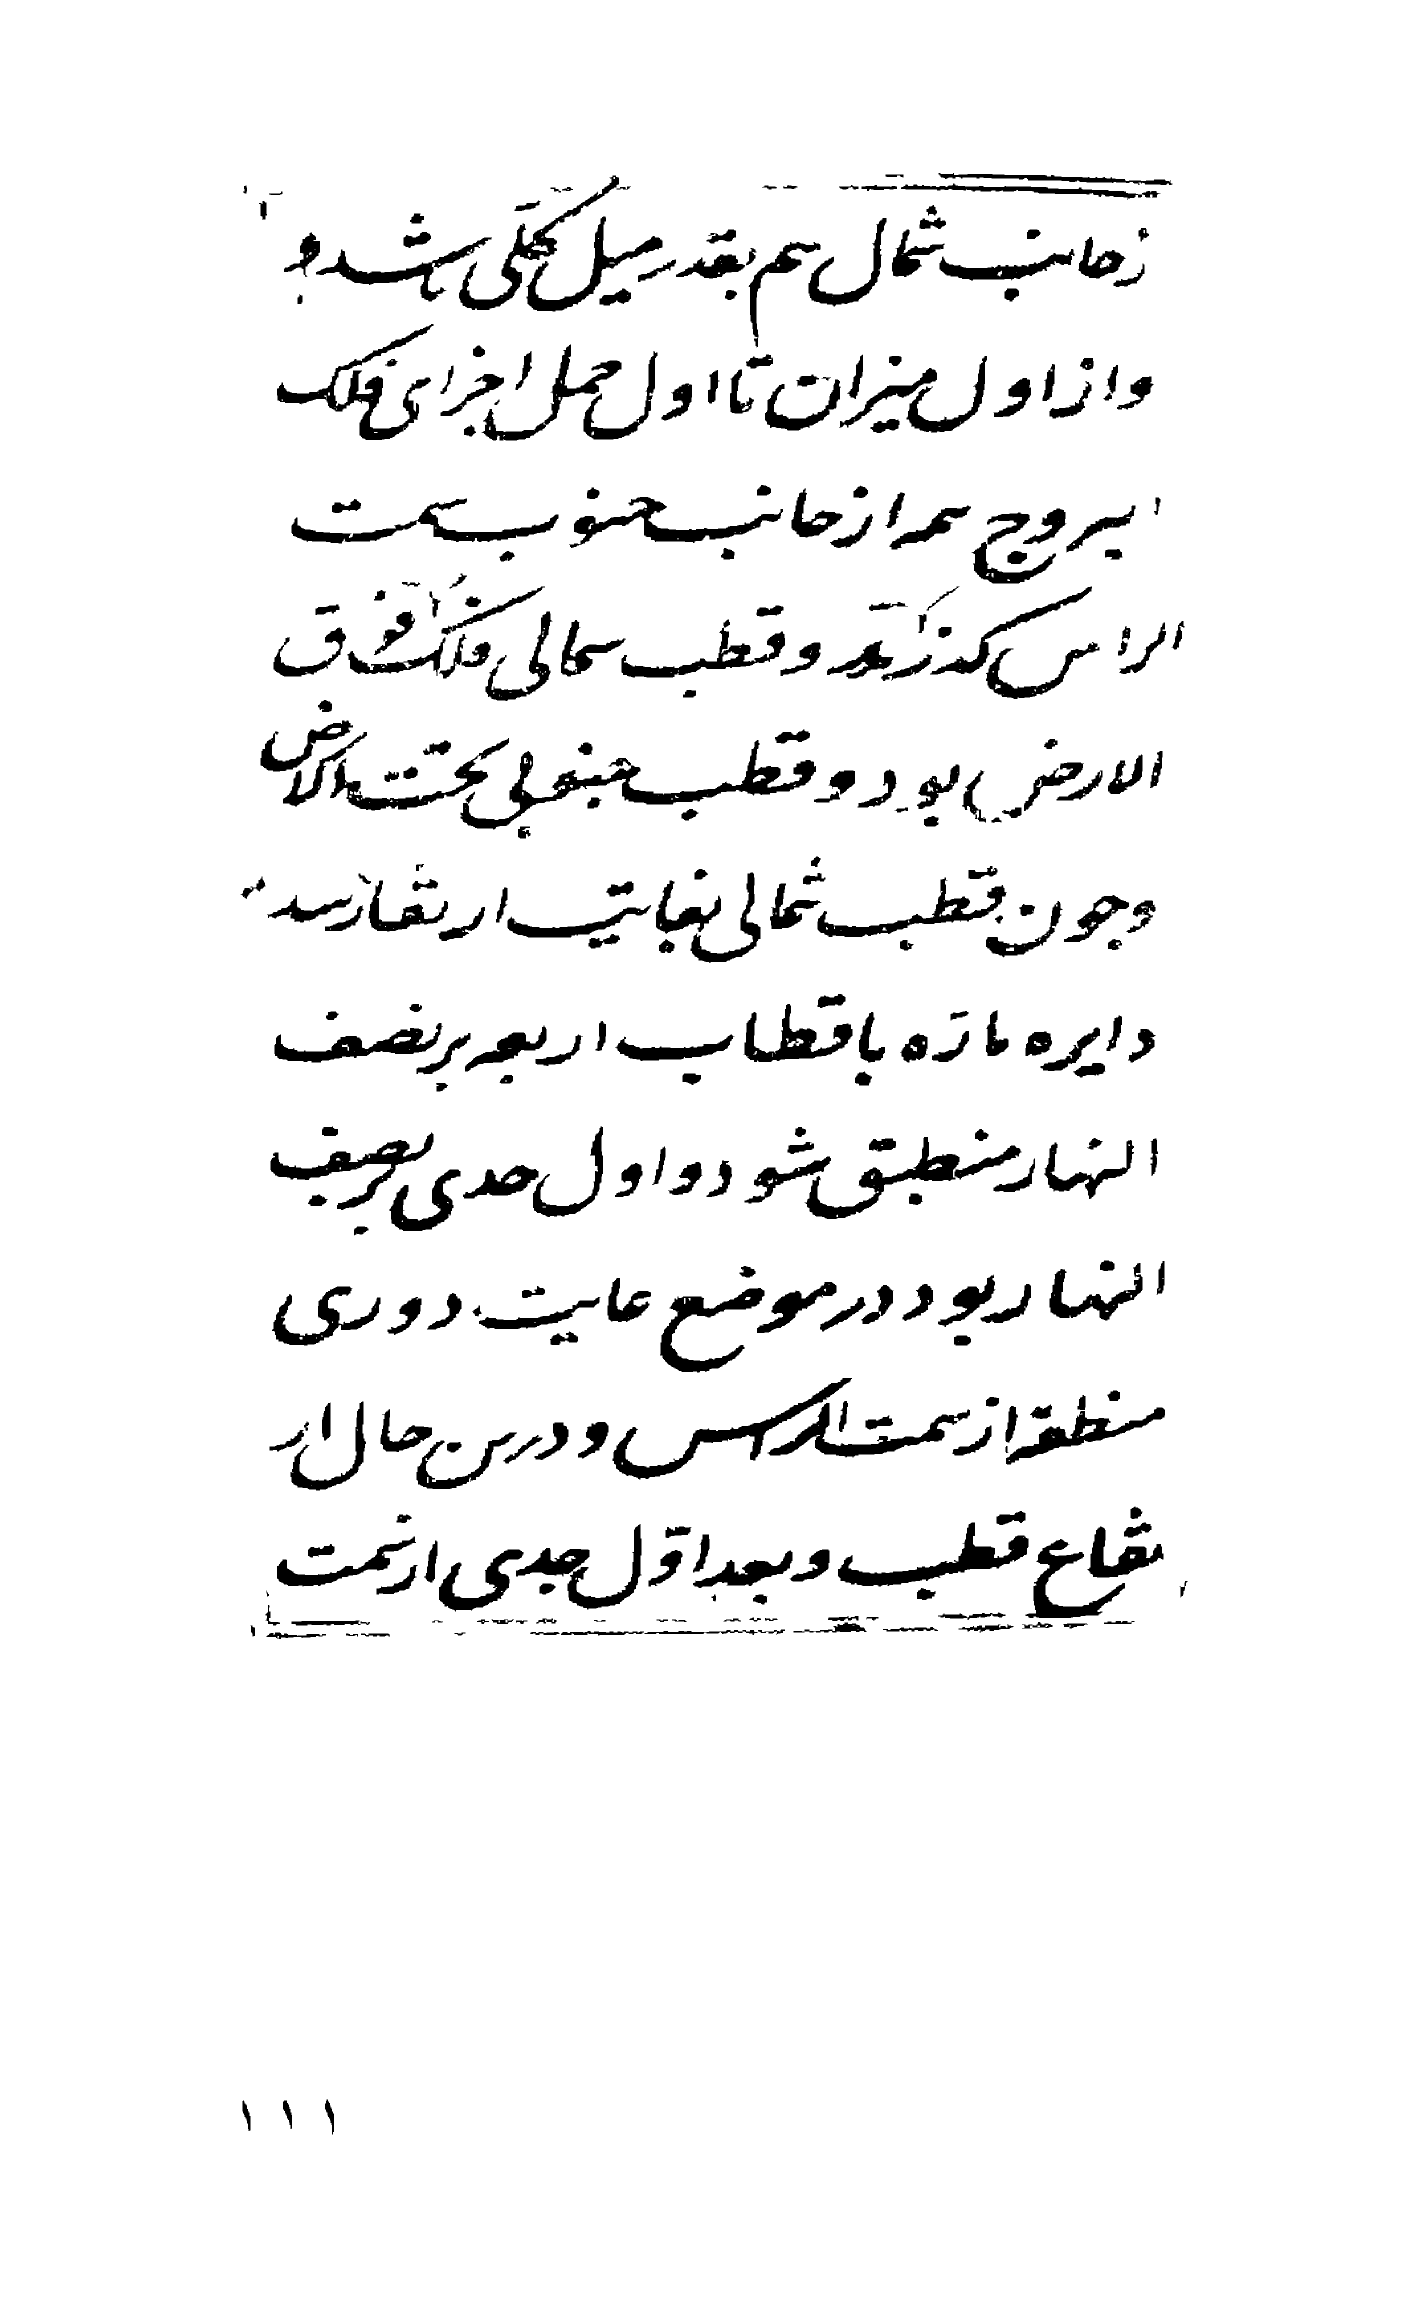 زجانب شمال هم بقدر میل کلی باشد و
و از اول میزان تا اول حمل اجزای فلک
ابروج همه از جانب جنوب سمت
الراس گذرند و قطب شمالی فلک فوق
الارض بود و قطب جنوبی تحت الارض
و چون قطب شمالی بغایت ارتفاع رسد
دایره ماره باقطاب اربعه بر نصف
النهار منطبق شود و اول جدی بر نصف
النهار بود در موضع غایت دوری
منطقه از سمت الراس و درین حال ار
تفاع قطب و بعد اوّل جدی از سمت
۱۱۱